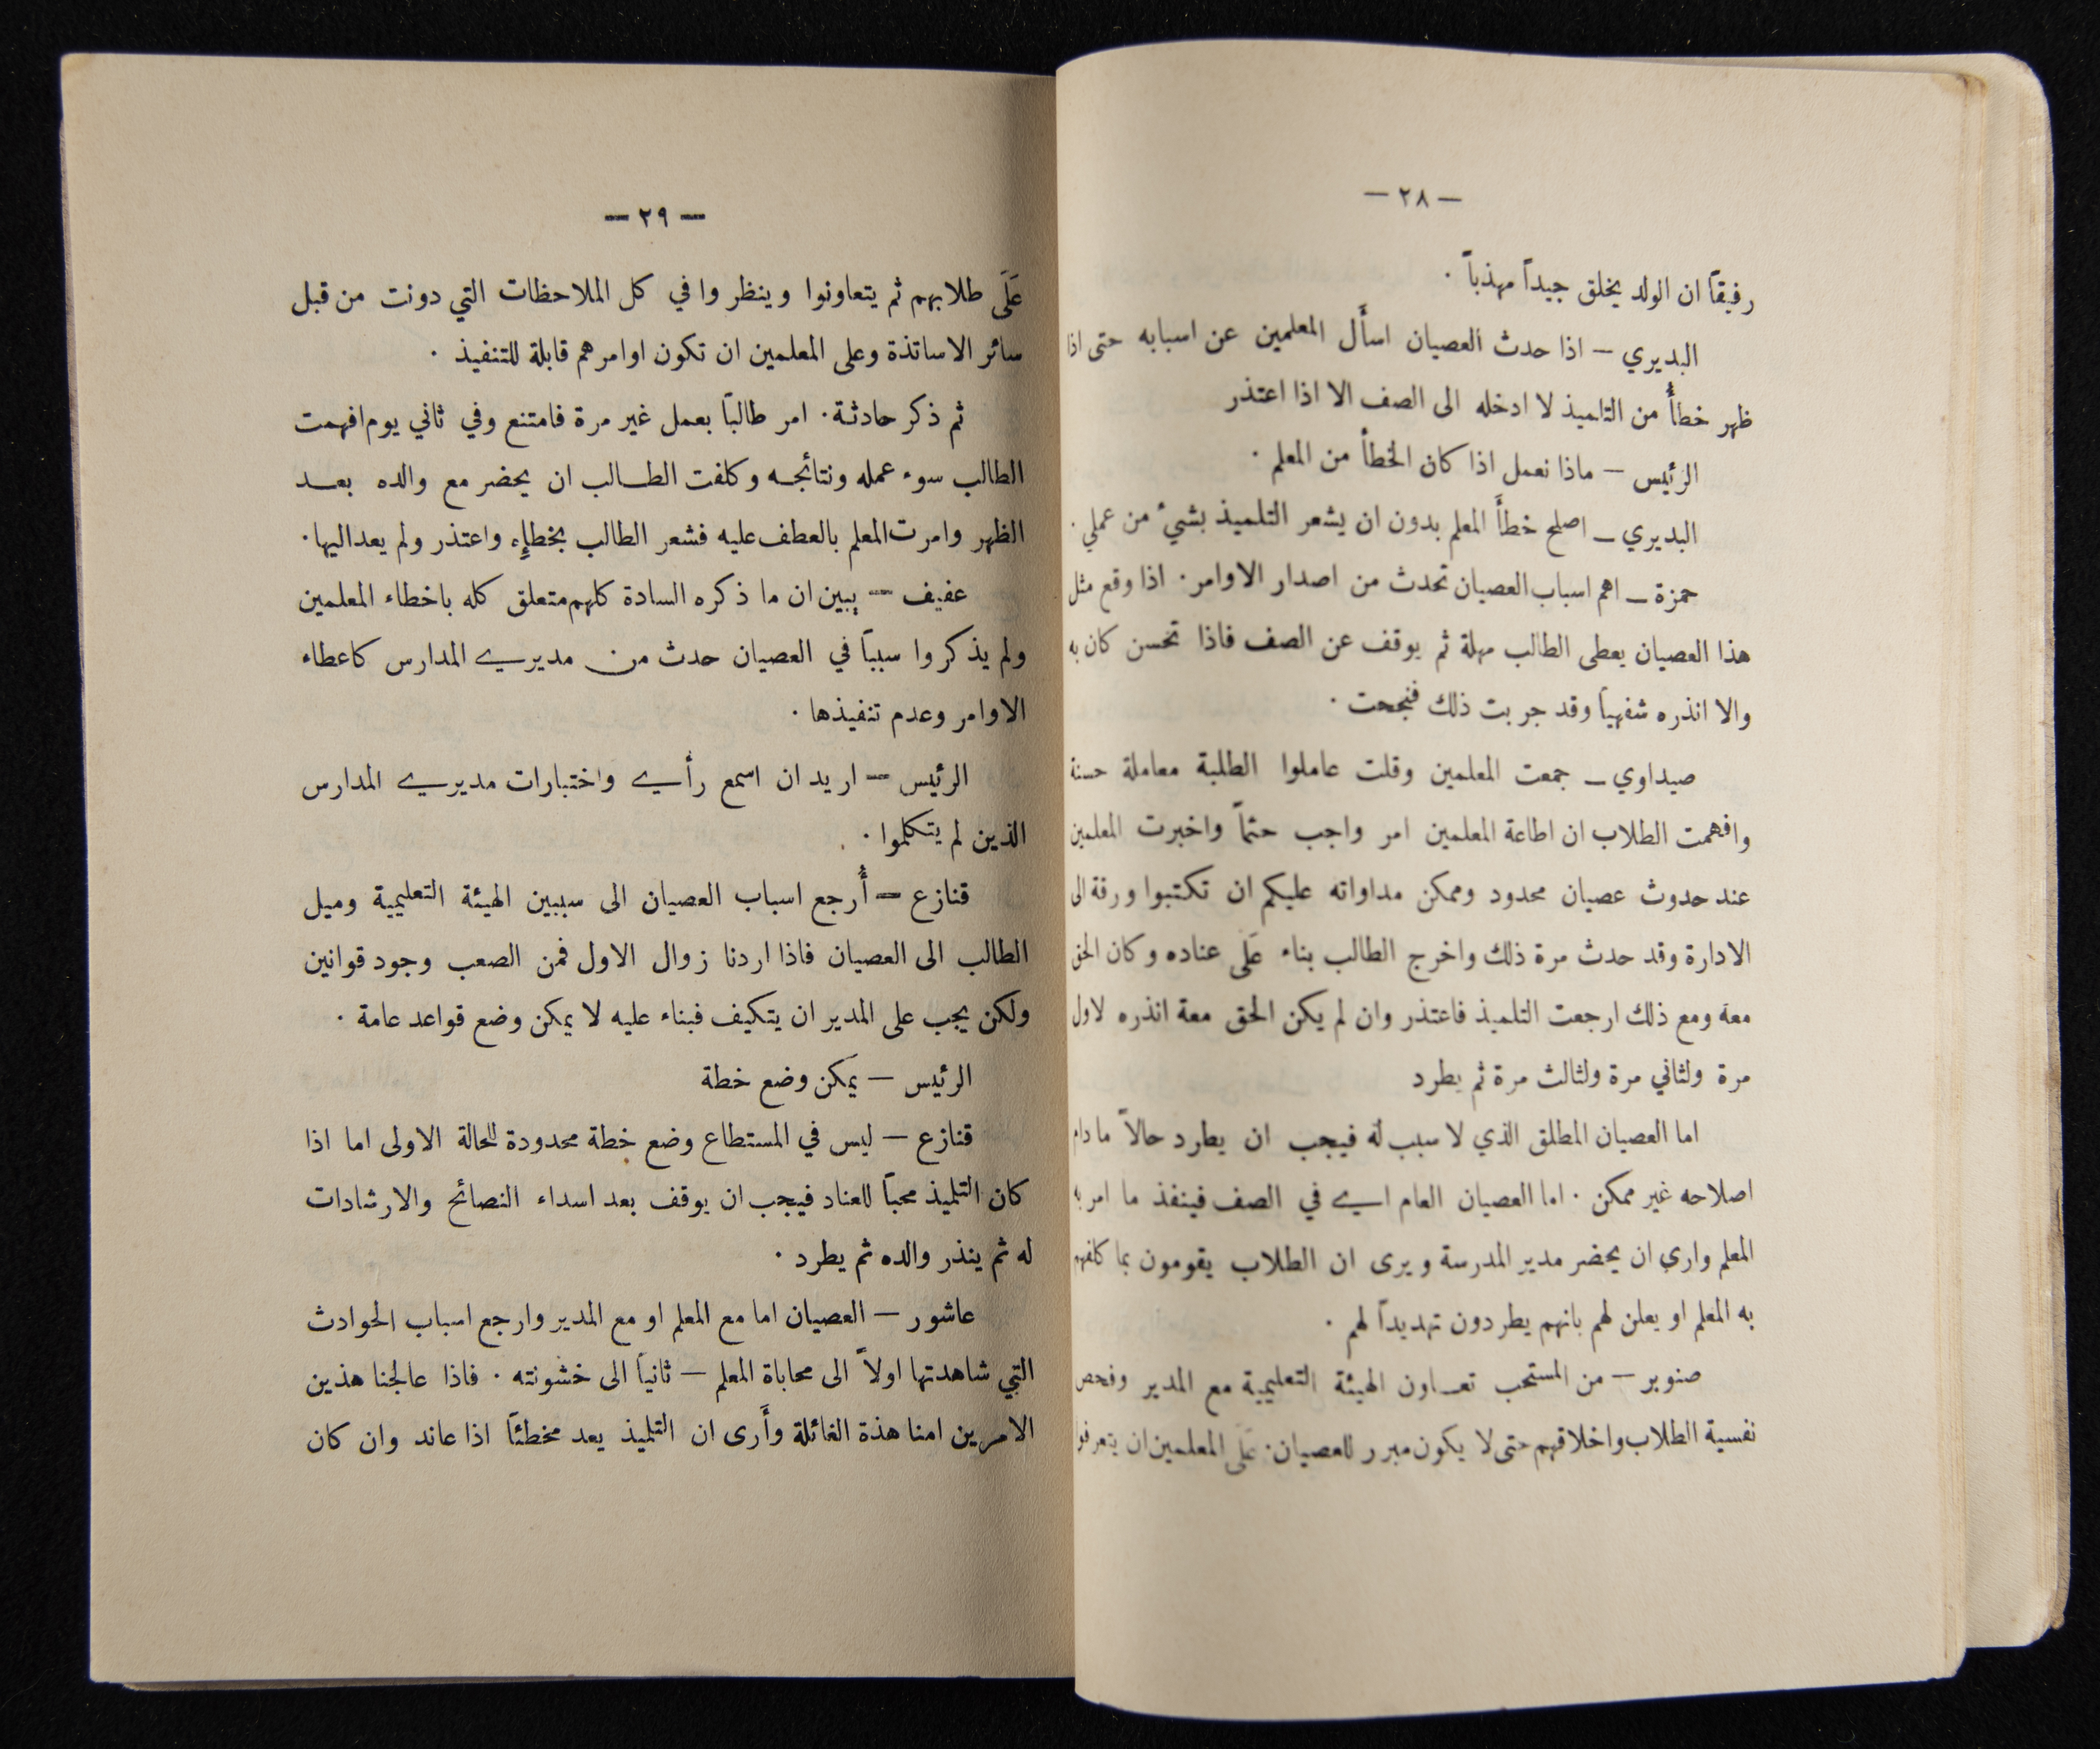 — ٢٨ —
رفيقاً ان الولد يخلق جيداً مهذباً .
البديري — اذا حدث العصيان اسأل المعلمين عن اسبابه حتى اذا
ظهر خطأ من التلميذ لا ادخله الى الصف الا اذا اعتذر
الرئيس — ماذا نعمل اذا كان الخطأ من المعلم .
البديري — اصلح خطأ المعلم بدون ان يشعر التلميذ بشيء من عملي .
حمزة — اهم اسباب العصيان تحدث من اصدار الاوامر . اذا وقع مثل
هذا العصيان يعطى الطالب مهلة ثم يوقف عن الصف فاذا تحسن كان به
والا انذره شفهياً وقد جربت ذلك فنجحت .
صيداوي — جمعت المعلمين وقلت عاملوا الطلبة معاملة حسنة
وافهمت الطلاب ان اطاعة المعلمين امر واجب حتماً واخبرت المعلمين
عند حدوث عصيان محدود وممكن مداواته عليكم ان تكتبوا ورقة الى
الادارة وقد حدث مرة ذلك واخرج الطالب بناء عَلَى عناده وكان الحق
معه ومع ذلك ارجعت التلميذ فاعتذر وان لم يكن الحق معه انذره لاول
مرة ولثاني مرة ولثالث مرة ثم يطرد
اما العصيان المطلق الذي لا سبب له فيجب ان يطرد حالاً ما دام
اصلاحه غير ممكن . اما العصيان العام اي في الصف فينفذ ما امر به
المعلم وارى ان يحضر مدير المدرسة ويرى ان الطلاب يقومون بما كلفهم
به المعلم او يعلن لهم بانهم يطردون تهديداً لهم .
صنوبر — من المستحب تعاون الهيئة التعليمية مع المدير وفحص
نفسية الطلاب واخلاقهم حتى لا يكون مبرر للعصيان . عَلَى المعلمين ان يتعرفوا
— ٢٩ —
عَلَى طلابهم ثم يتعاونوا وينظروا في كل الملاحظات التي دونت من قبل
سائر الاساتذة وعلى المعلمين ان تكون اوامرهم قابلة للتنفيذ .
ثم ذكر حادثة . امر طالباً بعمل غير مرة فامتنع وفي ثاني يوم افهمت
الطالب سوء عمله ونتائجه وكلفت الطالب ان يحضر مع والده بعد
الظهر وامرت المعلم بالعطف عليه فشعر الطالب بخطإِه واعتذر ولم يعد اليها .
عفيف — يبين ان ما ذكره السادة كلهم متعلق كله باخطاء المعلمين
ولم يذكروا سبباً في العصيان حدث من مديري المدارس كاعطاء
الاوامر وعدم تنفيذها .
الرئيس — اريد ان اسمع رأي واختبارات مديري المدارس
الذين لم يتكلموا .
قنازع — أُرجع اسباب العصيان الى سببين الهيئة التعليمية وميل
الطالب الى العصيان فاذا اردنا زوال الاول فمن الصعب وجود قوانين
ولكن يجب على المدير ان يتكيف فبناء عليه لا يمكن وضع قواعد عامة .
الرئيس — يمكن وضع خطة
قنازع — ليس في المستطاع وضع خطة محدودة للحالة الاولى اما اذا
كان التلميذ محباً للعناد فيجب ان يوقف بعد اسداء النصائح والارشادات
له ثم ينذر والده ثم يطرد .
عاشور — العصيان اما مع المعلم او مع المدير وارجع اسباب الحوادث
التي شاهدتها اولاً الى محاباة المعلم — ثانياً الى خشونته . فاذا عالجنا هذين
الامرين امنا هذة الغائلة وأَرى ان التلميذ يعد مخطئاً اذا عاند وان كان